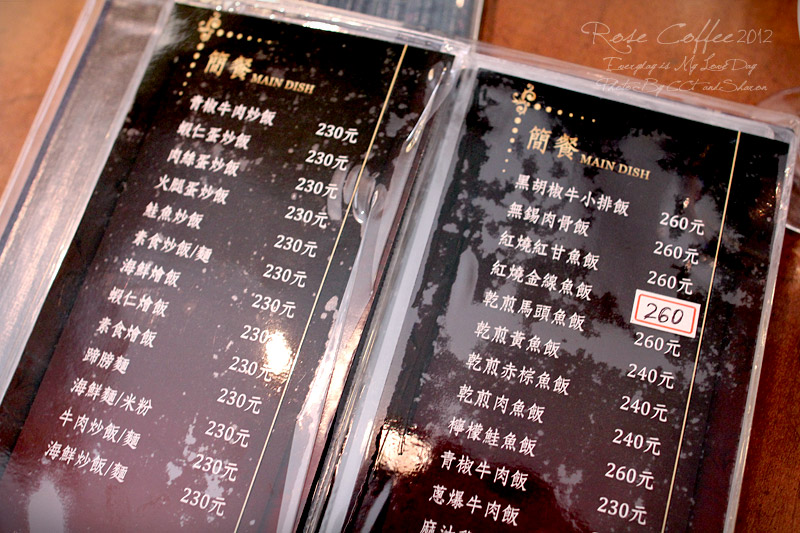 Rose Coffee 2012
Everyday is My Love Day
Photo By CCT and Sharon
簡餐 MAIN DISH
青椒牛肉炒飯 230元
蝦仁蛋炒飯 230元
肉絲蛋炒飯 230元
火腿蛋炒飯 230元
鮭魚炒飯 230元
素食炒飯/麵 230元
海鮮燴飯 230元
蝦仁燴飯 230
素食燴飯 230元
蹄膀麵 230元
海鮮麵/米粉 230元
牛肉炒飯/麵 230元
海鮮炒飯/麵 230元
簡餐 MAIN DISH
黑胡椒牛小排飯 260元
無錫肉骨飯 260元
紅燒紅甘魚飯 260元
紅燒金線魚飯 260
乾煎馬頭魚飯 260元
乾煎黃魚飯 240元
乾煎赤棕魚飯 240元
乾煎肉魚飯 240元
檸檬鮭魚飯 260元
青椒牛肉飯 230元
蔥爆牛肉飯